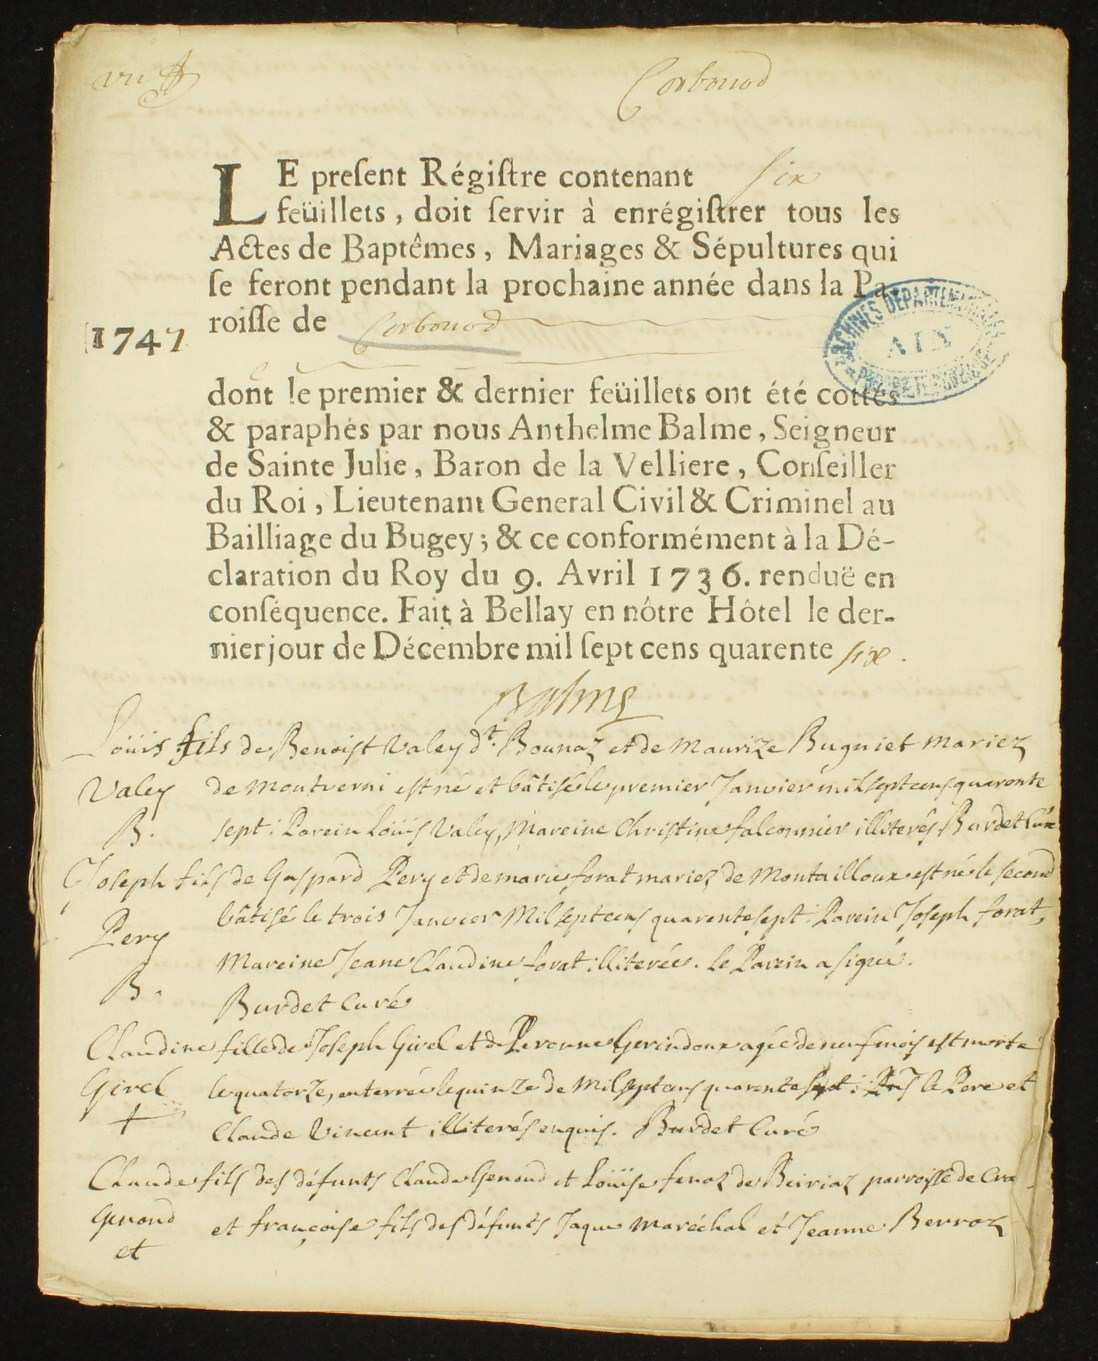 Corbonod
LE preſent Régiſtre contenant six
feüillets, doit ſervir à enrégiſtrer tous les
Actes de Baptêmes, Mariages & Sépultures qui
ſe feront pendant la prochaine année dans la Pa-
roiſſe de Corbonod
1747
ARCHIVES DEPARTEMENTALES
AIN
dont le premier & dernier feüillets ont été cottés
& paraphés par nous Anthelme Balme, Seigneur
de Sainte Julie, Baron de la Velliere, Conſeiller
du Roi, Lieutenant General Civil & Criminel au
Bailliage du Bugey; & ce conformément à la Dé-
claration du Roy du 9. Avril 1736. renduë en
conſéquence. Fait à Bellay en nôtre Hôtel le der-
nier jour de Décembre mil ſept cens quarente six.
Balme
Loüis fils de Benoist Valey dt. Bounaz et de Maurize Bugniet mariez
Valey de Montverni est né et bâtisé le premier Janvier mil sept cens quarente
B. sept: Parein Loüis Valey, Mareine Christine falconnier illiterés Burdet Curé
Joseph fils de Gaspard Pery et de marie forat mariez de Montailloux est né le second
bâtisé le trois Janvier Mil sept cens quarente sept: Parein Joseph forat,
Pery
Mareine Jeane Claudine forat illiterée. le Parein a signé.
B.
Burdet Curé
Claudine fille de Joseph Givel et de Peronne Gerindoux agée de neuf mois est morte
Givel le quatorze, enterrée le quinze de Mil sept cens quarente sept: le Pere et
+ Claude Vincent illiterés enquis. Burdet Curé
Claude fils des défunts Claude Genoud et Loüise fenoz de Beiriaz parroisse de
Genoud et françoise fils des défunts Jaque Maréchal et Jeanne Berroz
et